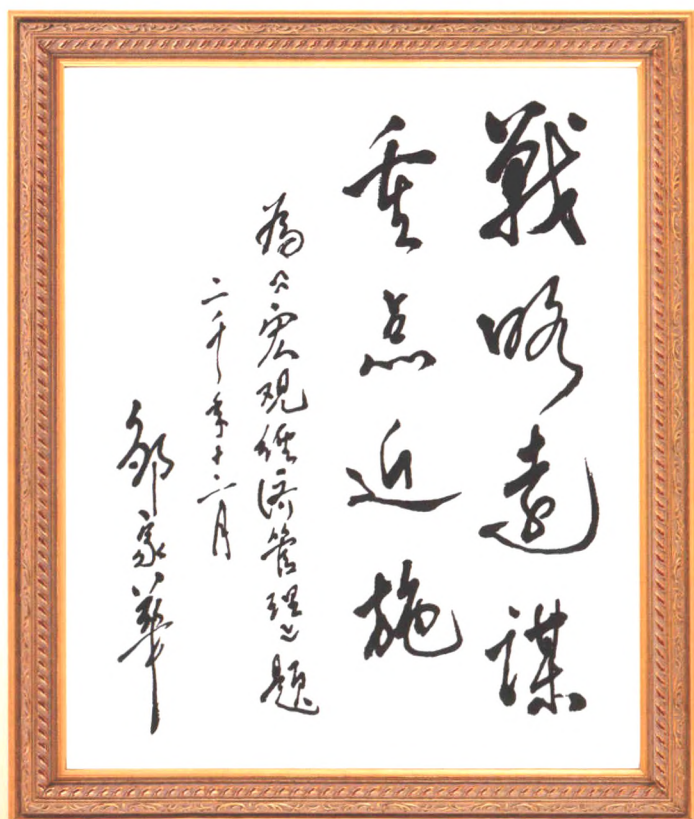 戰略遠謀
重点近施
为《宏观经济管理》题
二千年十二月
鄒家華